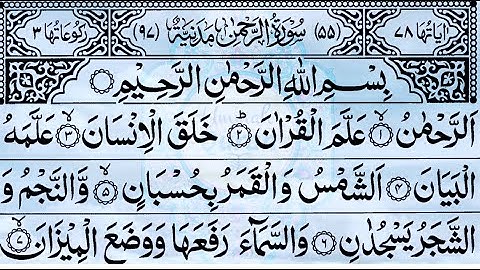 اٰیَاتُهَا ٧٨ (٥٥) سُوْرَةُ الرَّحْمٰنِ مَدَنِيَّةٌ (٩٧) رُكُوْعَاتُهَا ٣
بِسْمِ اللّٰهِ الرَّحْمٰنِ الرَّحِيْمِ
اَلرَّحْمٰنُ ۙ﴿١﴾ عَلَّمَ الْقُرْاٰنَ ؕ﴿٢﴾ خَلَقَ الْاِنْسَانَ ۙ﴿٣﴾ عَلَّمَهُ
الْبَيَانَ ﴿٤﴾ اَلشَّمْسُ وَالْقَمَرُ بِحُسْبَانٍ ۙ﴿٥﴾ وَّالنَّجْمُ وَ
الشَّجَرُ يَسْجُدٰنِ ﴿٦﴾ وَالسَّمَآءَ رَفَعَهَا وَوَضَعَ الْمِيْزَانَ ۙ﴿٧﴾